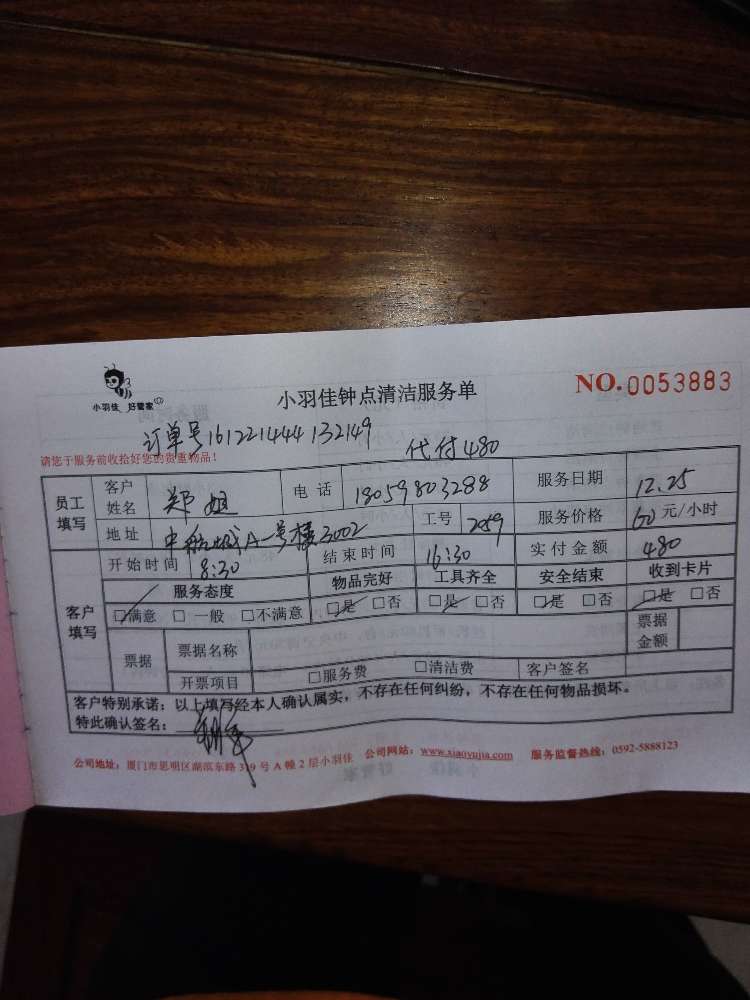 小羽佳 好管家
小羽佳钟点清洁服务单
NO.0053883
订单号161221444132149
代付480
请您于服务前收拾好您的贵重物品！
员工填写 客户姓名 郑姐 电话 18059803288 服务日期 12.25
地址 中航城A一号楼3002 工号 2059 服务价格 60元/小时
客户填写 开始时间 8:30 结束时间 16:30 实付金额 480
服务态度 物品完好 工具齐全 安全结束 收到卡片
□满意 □一般 □不满意 □是 □否 □是 □否 □是 □否 □是 □否
票据 票据名称 票据金额
开票项目 □服务费 □清洁费 客户签名
客户特别承诺：以上填写经本人确认属实，不存在任何纠纷，不存在任何物品损坏。
特此确认签名：
公司地址：厦门市思明区湖滨东路319号A幢2层小羽佳 公司网站：www.xiaoyujia.com 服务监督热线：0592-5888123